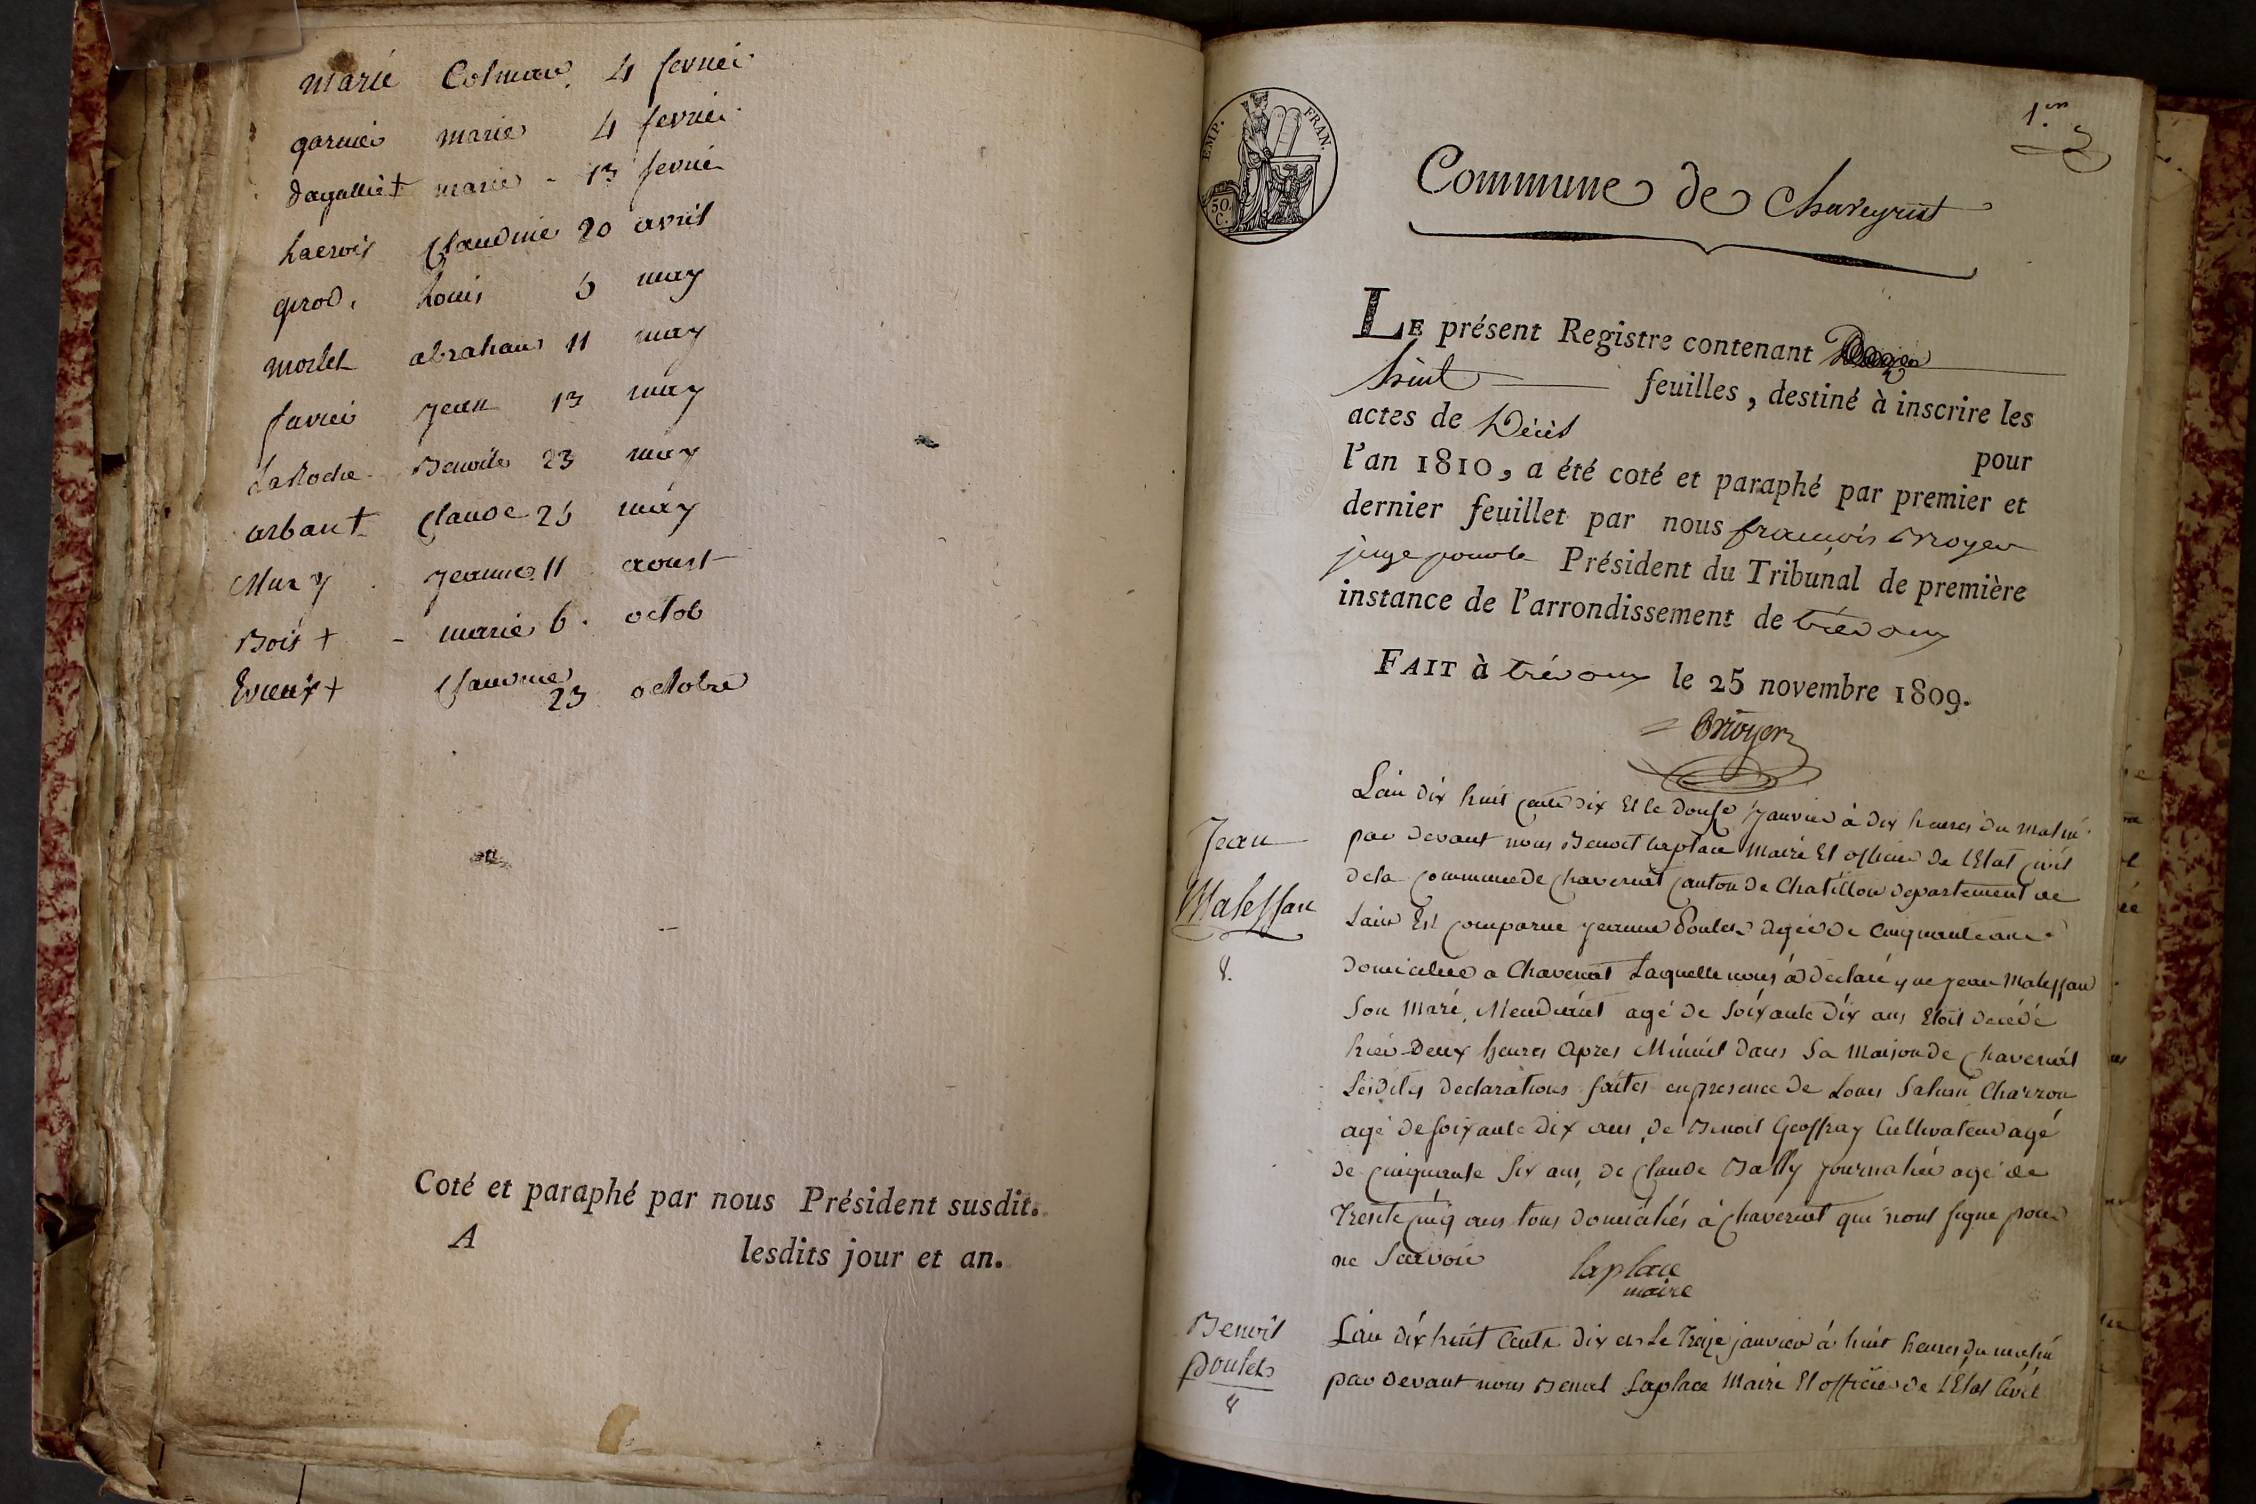 Marie Colmar 4 fevrier
garnier marie 4 fevrier
Dagallier + marie - 13 fevrier
Lacroix Claudine 20 avril
girod. Louis 5 may
morlet abraham 11 may
favier jean 13 may
LaRoche Benoite 23 may
arban + Claude 25 may
Mury jeanne 11 aoust
Bois + - marie 6. octob
Evieux + Claudine 23 octobre
Coté et paraphé par nous Président susdit.
A lesdits jour et an.
1.er
EMP. FRAN.
50. C.
Commune de Chaveyriat
LE présent Registre contenant
huit feuilles, destiné à inscrire les
actes de Décès pour
l'an 1810, a été coté et paraphé par premier et
dernier feuillet par nous françois Broyer
juge pour le Président du Tribunal de première
instance de l'arrondissement de trévoux
FAIT à trévoux le 25 novembre 1809.
Broyer
Jean
Malessan
8.
L'an dix huit cents dix Et le douse janvier à dix heures du matin
par devant nous Benoit laplace Maire Et officier de l'Etat civil
de la commune de Chaveriat canton de Chatillon departement de
Lain Est comparue jeanne Poulet agée de cinquante ans
domiciliée a Chaveriat Laquelle nous a déclaré que jean Malessan
Son Mari, Mendient agé de Soixante Dix ans Etoit décédé
hier Deux heures apres Minuit dans Sa Maison de Chaveriat
Lesdites declarations faites en presence de Louis Salumi Charron
agé de soixante dix ans, de Benoit Geoffray Cultivateur agé
de cinquante Six ans, de Claude Bally journalier agé de
Trente cinq ans tous domiciliés à Chaveriat qui n'ont signe pour
ne Savoir
laplace
maire
Benoit
Poulet
8
L'an dix huit Cents dix et Le Treize janvier à huit heures du matin
par devant nous Benoit Laplace Maire Et officier de l'Etat Civil